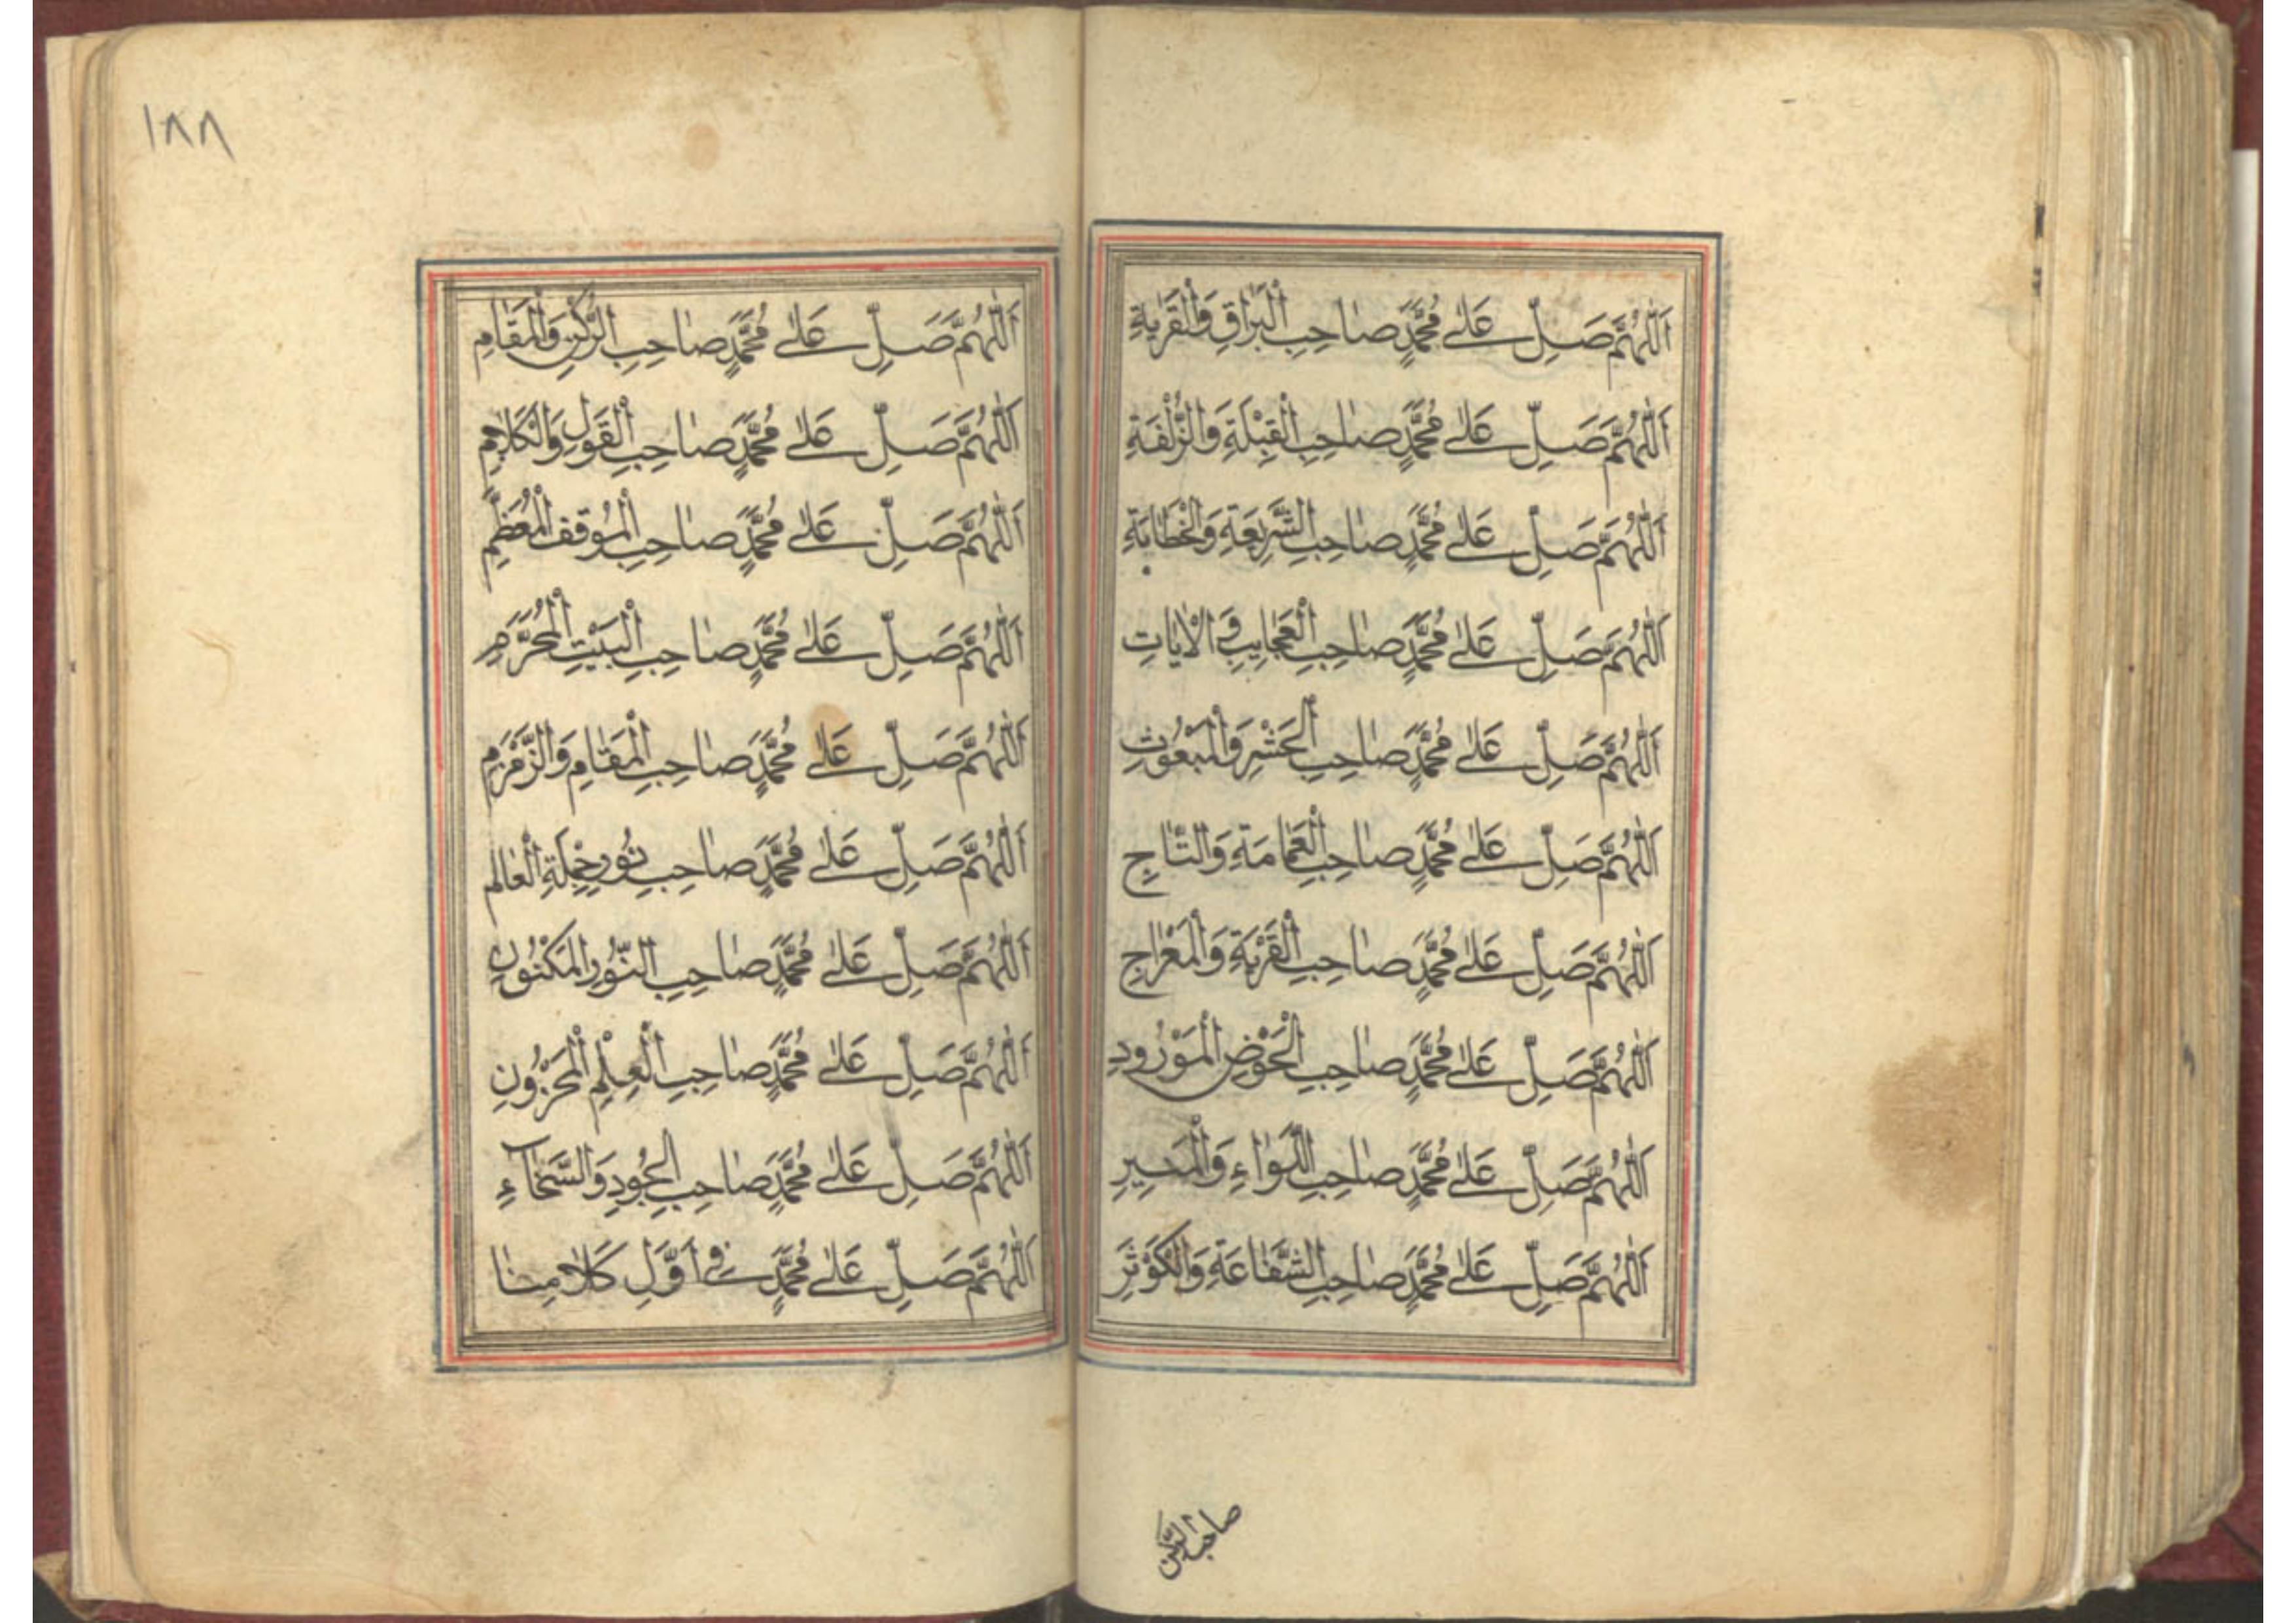 اَللّٰهُمَّ صَلِّ عَلٰى مُحَمَّدٍ صَاحِبِ الْبُرَاقِ وَالْقَرَابَةِ
اَللّٰهُمَّ صَلِّ عَلٰى مُحَمَّدٍ صَاحِبِ الْقِبْلَةِ وَالزُّلْفَةِ
اَللّٰهُمَّ صَلِّ عَلٰى مُحَمَّدٍ صَاحِبِ الشَّرِيْعَةِ وَالْخَطَابَةِ
اَللّٰهُمَّ صَلِّ عَلٰى مُحَمَّدٍ صَاحِبِ الْعَجَايِبِ وَ الْاٰيَاتِ
اَللّٰهُمَّ صَلِّ عَلٰى مُحَمَّدٍ صَاحِبِ الْحَشْرِ وَالْمَبْعُوْثِ
اَللّٰهُمَّ صَلِّ عَلٰى مُحَمَّدٍ صَاحِبِ الْعَمَامَةِ وَالتَّاجِ
اَللّٰهُمَّ صَلِّ عَلٰى مُحَمَّدٍ صَاحِبِ الْقُرْبَةِ وَالْمَعْرَاجِ
اَللّٰهُمَّ صَلِّ عَلٰى مُحَمَّدٍ صَاحِبِ الْحَوْضِ الْمَوْرُودِ
اَللّٰهُمَّ صَلِّ عَلٰى مُحَمَّدٍ صَاحِبِ اللِّوَاءِ
اَللّٰهُمَّ صَلِّ عَلٰى مُحَمَّدٍ صَاحِبِ الشَّفَاعَةِ وَالْكَوْثَرِ
صاحب الركن
١٨٨
اَللّٰهُمَّ صَلِّ عَلٰى مُحَمَّدٍ صَاحِبِ الرُّكْنِ وَالْمَقَامِ
اَللّٰهُمَّ صَلِّ عَلٰى مُحَمَّدٍ صَاحِبِ الْقَوْلِ وَالْكَلَامِ
اَللّٰهُمَّ صَلِّ عَلٰى مُحَمَّدٍ صَاحِبِ الْمَوْقِفِ الْمُعَظَّمِ
اَللّٰهُمَّ صَلِّ عَلٰى مُحَمَّدٍ صَاحِبِ الْبَيْتِ الْمُحَرَّمِ
اَللّٰهُمَّ صَلِّ عَلٰى مُحَمَّدٍ صَاحِبِ الْمَقَامِ وَالزَّمْزَمِ
اَللّٰهُمَّ صَلِّ عَلٰى مُحَمَّدٍ صَاحِبِ نُوْرِ الْعَالَمِ
اَللّٰهُمَّ صَلِّ عَلٰى مُحَمَّدٍ صَاحِبِ النُّوْرِ الْمَكْنُوْنِ
اَللّٰهُمَّ صَلِّ عَلٰى مُحَمَّدٍ صَاحِبِ الْعِلْمِ الْمَخْزُوْنِ
اَللّٰهُمَّ صَلِّ عَلٰى مُحَمَّدٍ صَاحِبِ الْجُوْدِ وَالسَّخَآءِ
اَللّٰهُمَّ صَلِّ عَلٰى مُحَمَّدٍ فِى اَوَّلِ كَلَامِنَا